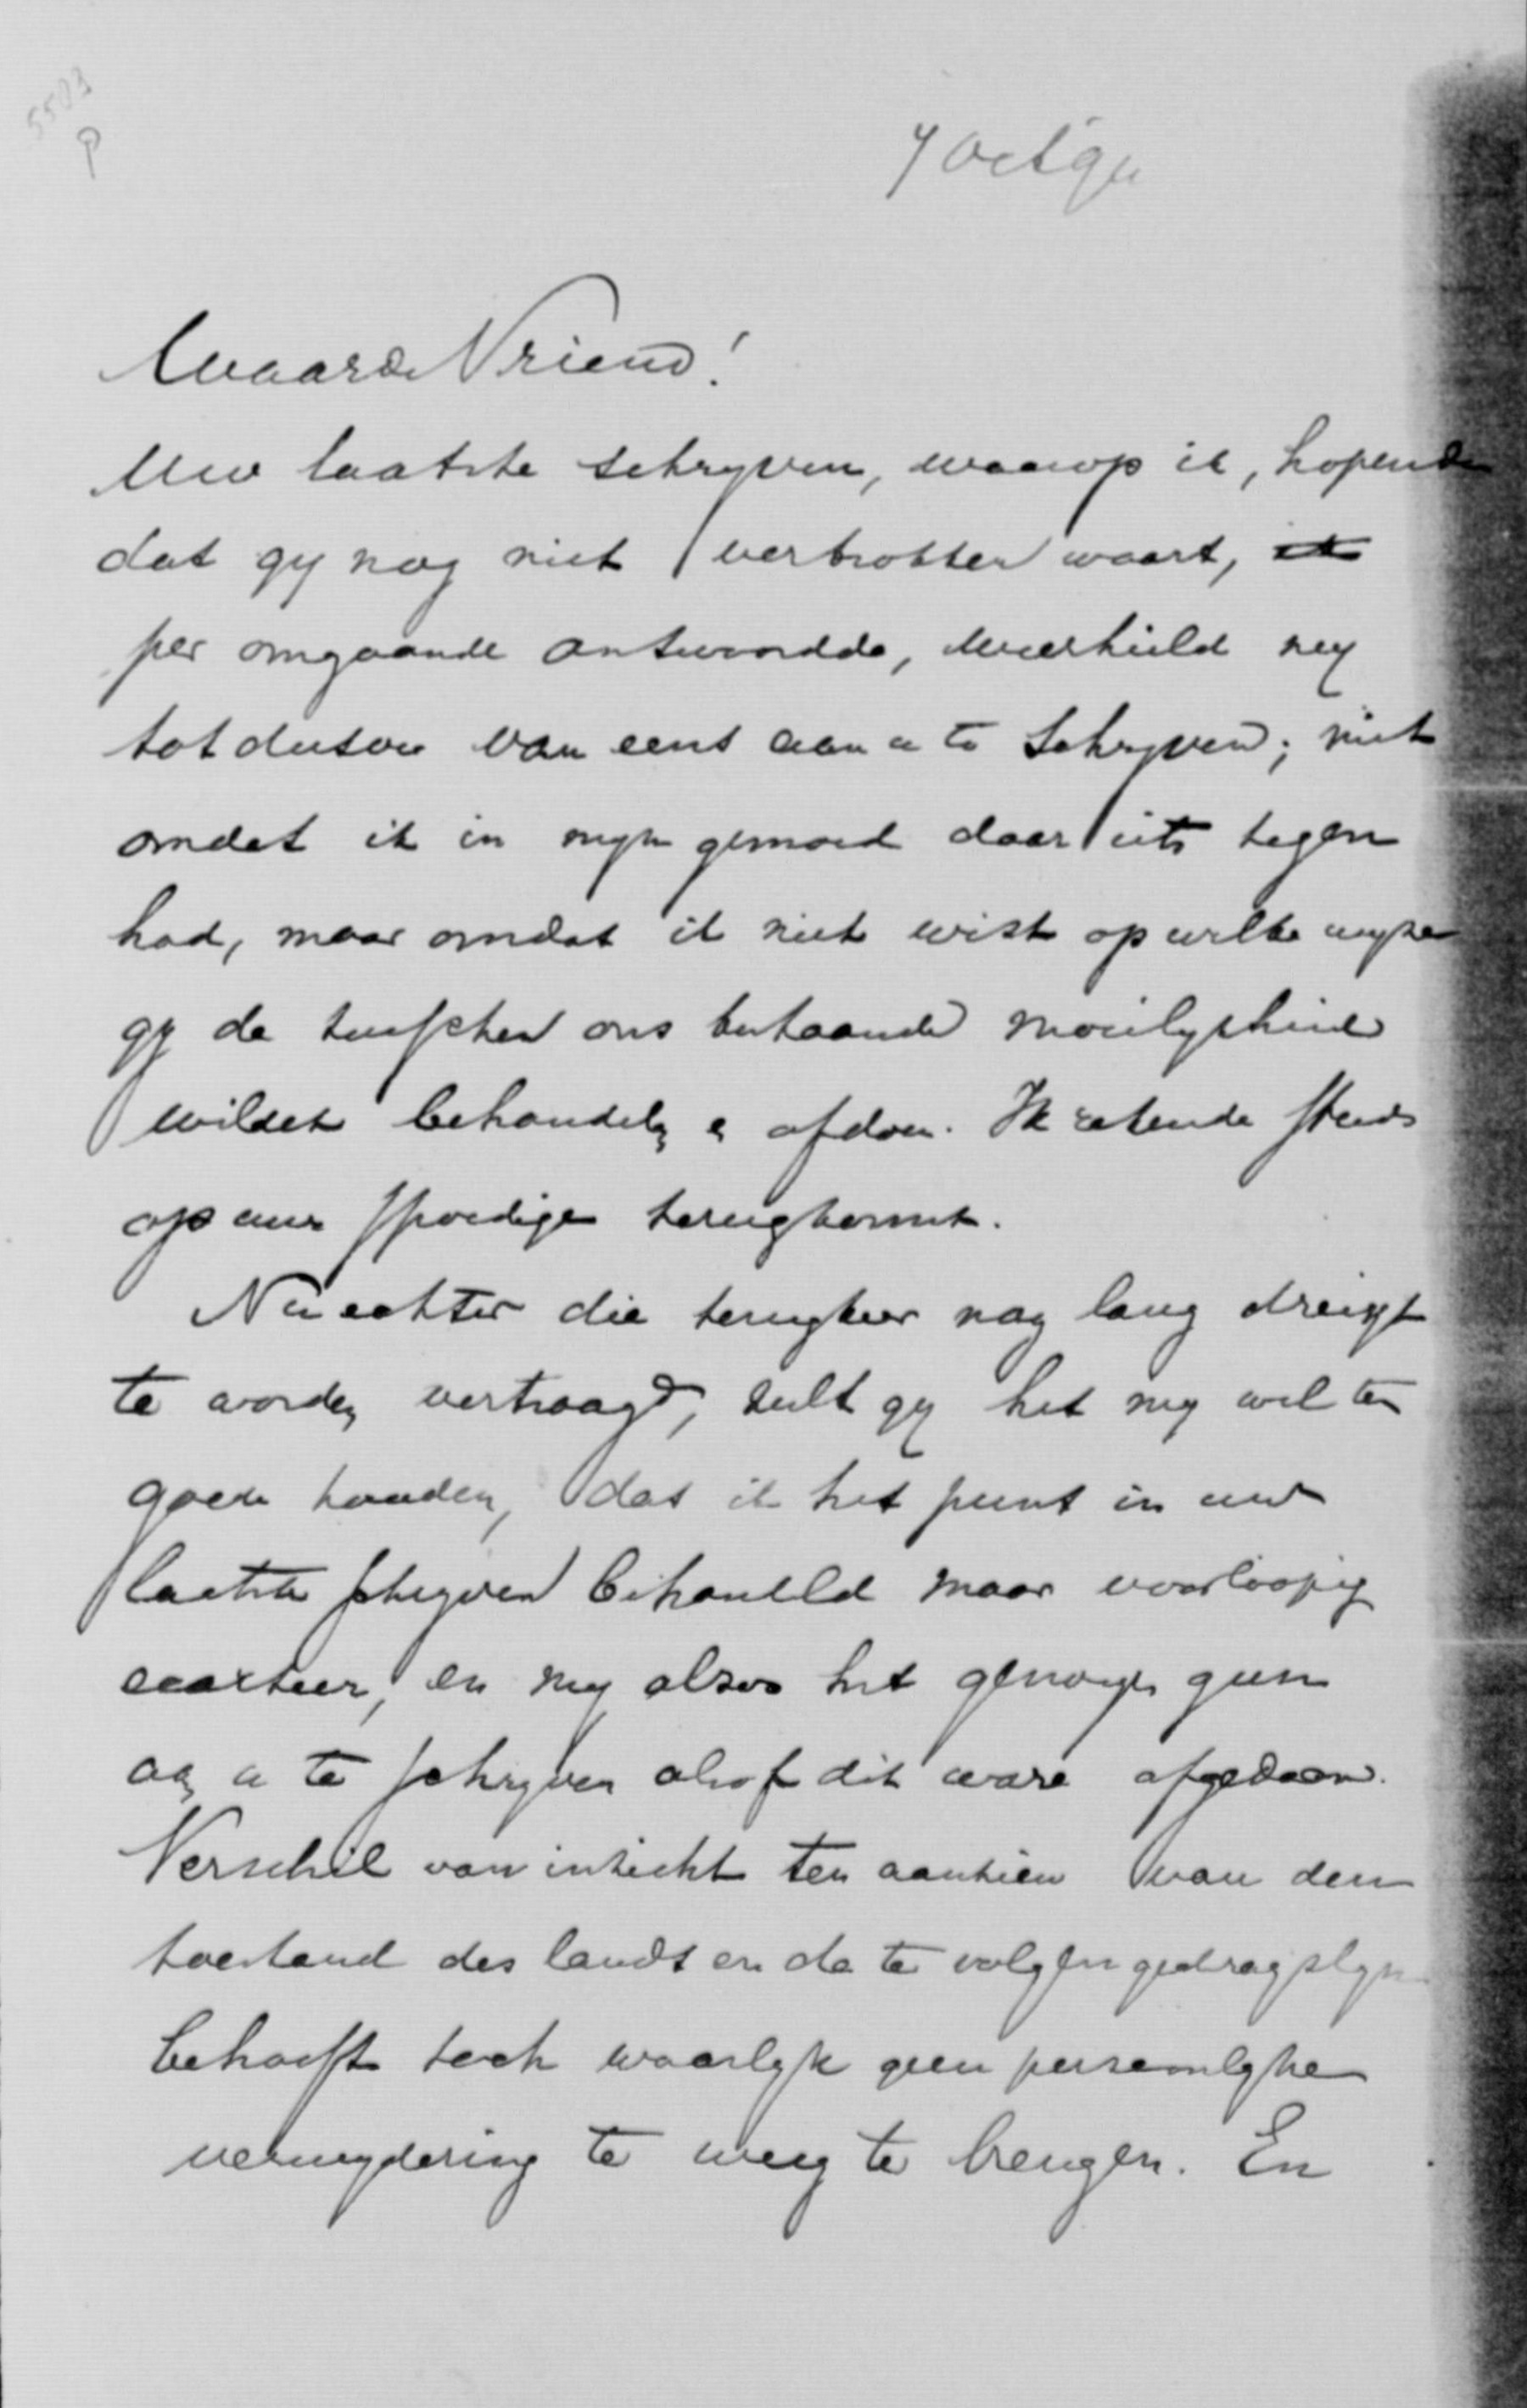 5503
P
7 Oct 94
Waarde Vriend!
Uw laatste schryven, waarop ik, hopende
dat gy nog niet vertrokken waart, ik
per omgaande antwoordde, weerhield my
totdusver van eens aan u te schryven; niet
omdat ik in myn gemoed daar iets tegen
had, maar omdat ik niet wist op welke wyze
gy de tusschen ons bestaande moeilykheid
wildet behandelen en afdoen. Ik rekende steeds
op uw spoedige terugkomst.
Nu echter die terugkeer nog lang dreigt
te worden vertraagd, zult gy het my wel ten
goede houden, dat ik het punt in uw
laatste schryven behandeld maar voorloopig
ecarteer, en my alzoo het genoegen gun
aan u te schryven alsof dit ware afgedaan.
Verschil van inzicht ten aanzien van den
toestand des lands en de te volgen gedragslyn
behoeft toch waarlyk geen persoonlyke
verwydering te weeg te brengen. En